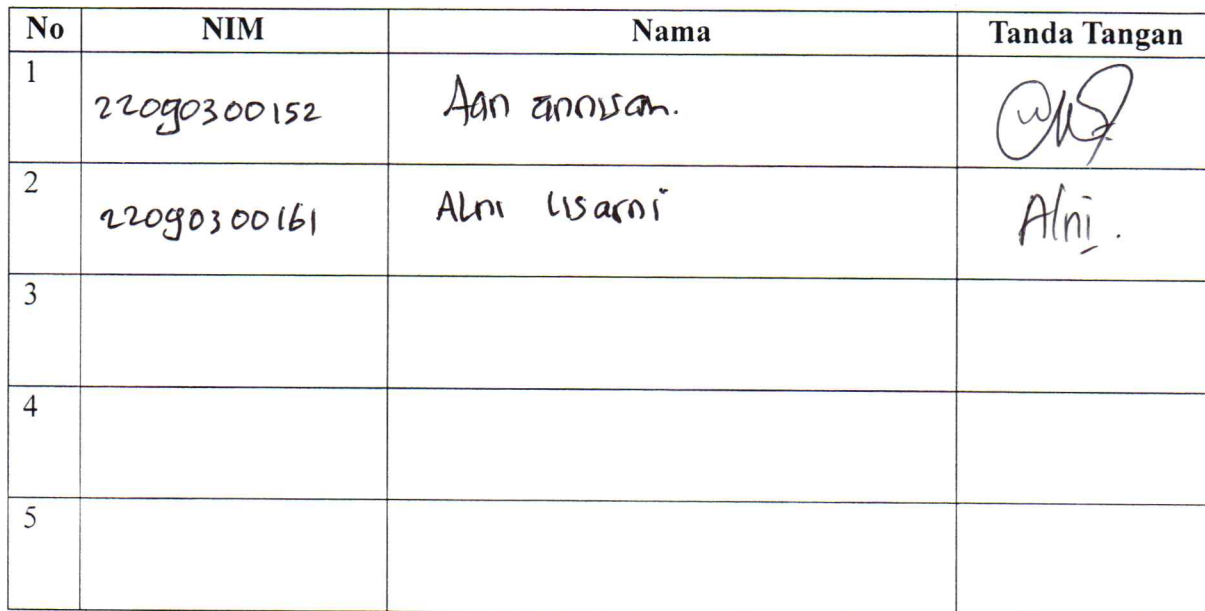 No NIM Nama Tanda Tangan
1 22090300152 Aan annisah.
2 22090300161 Alni lisarni Alni.
3
4
5